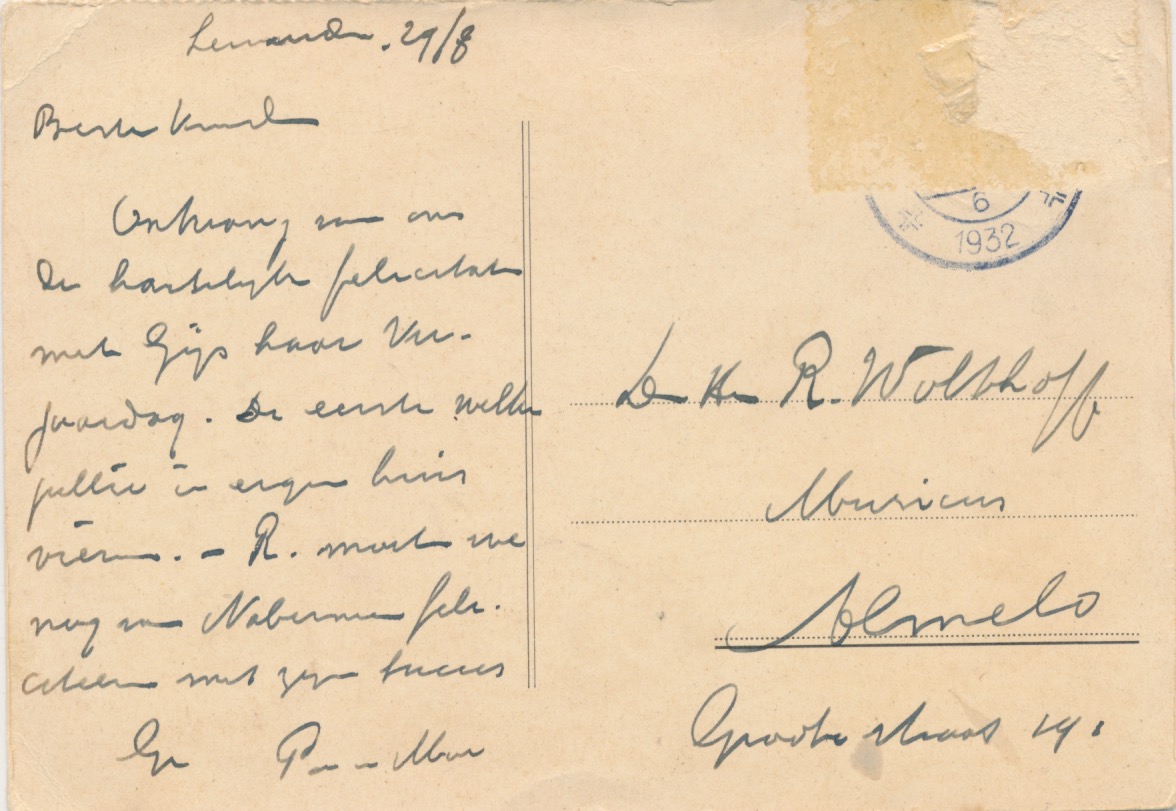 29/8
Beste
Ontvang van ons
de hartelijke felicitatie
met Gijs haar Ver-
jaardag. De eerste welke
jullie in eigen huis
vieren. - R. moet we
nog van Naberman feli-
citeeren met zijn succes
Gr Pa en Moe
6
1932
Den Heer R. Wolthoff
Musicus
Almelo
Groote straat